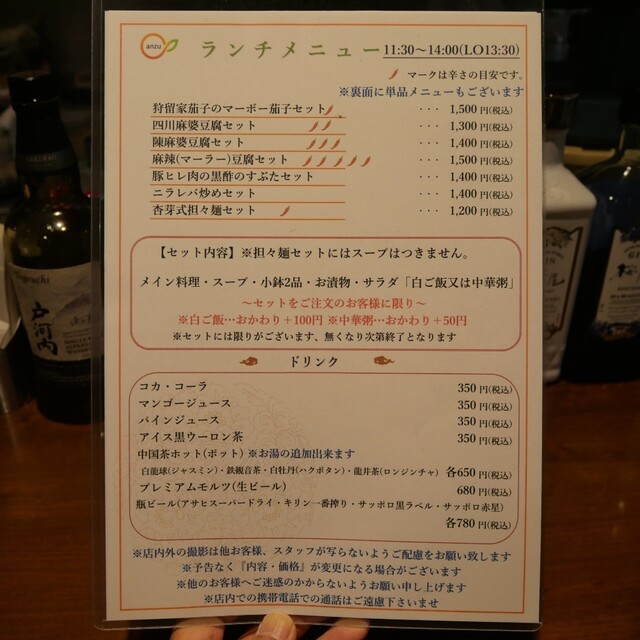 anzu
ランチメニュー 11:30〜14:00(LO13:30)
マークは辛さの目安です。
※裏面に単品メニューもございます
狩留家茄子のマーボー茄子セット ・・・ 1,500円(税込)
四川麻婆豆腐セット ・・・ 1,300円(税込)
陳麻婆豆腐セット ・・・ 1,400円(税込)
麻辣(マーラー)豆腐セット ・・・ 1,500円(税込)
豚ヒレ肉の黒酢のすぶたセット ・・・ 1,400円(税込)
ニラレバ炒めセット ・・・ 1,400円(税込)
杏芽式担々麺セット ・・・ 1,200円(税込)
【セット内容】※担々麺セットにはスープはつきません。
メイン料理・スープ・小鉢2品・お漬物・サラダ「白ご飯又は中華粥」
〜セットをご注文のお客様に限り〜
※白ご飯…おかわり＋100円 ※中華粥…おかわり＋50円
※セットには限りがございます、無くなり次第終了となります
ドリンク
コカ・コーラ 350円(税込)
マンゴージュース 350円(税込)
パインジュース 350円(税込)
アイス黒ウーロン茶 350円(税込)
中国茶ホット(ポット) ※お湯の追加出来ます
白龍球(ジャスミン)・鉄観音茶・白牡丹(ハクボタン)・龍井茶(ロンジンチャ) 各650円(税込)
プレミアムモルツ(生ビール) 680円(税込)
瓶ビール(アサヒスーパードライ・キリン一番搾り・サッポロ黒ラベル・サッポロ赤星)
各780円(税込)
※店内外の撮影は他お客様、スタッフが写らないようご配慮をお願い致します
※予告なく『内容・価格』が変更になる場合がございます
※他のお客様へご迷惑のかからないようお願い申し上げます
※店内での携帯電話での通話はご遠慮下さいませ
戸河内